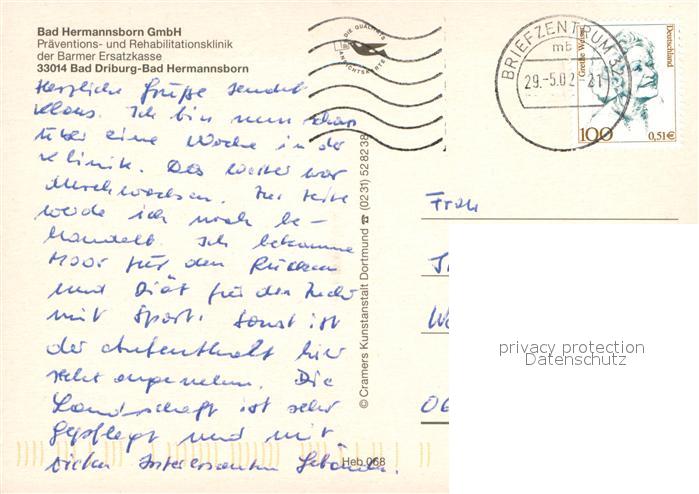 Bad Hermannsborn GmbH
Präventions- und Rehabilitationsklinik
der Barmer Ersatzkasse
33014 Bad Driburg-Bad Hermannsborn
Herzliche Grüße sendet
Klaus. Ich bin nun schon
über eine Woche in der
Klinik. Das Wetter war
durchwachsen. Zur Zeit
werde ich noch be-
handelt. Ich bekomme
Moor für den Rücken
und Diät für den Zucker
mit Sport. Sonst ist
der Aufenthalt hier
sehr angenehm. Die
Landschaft ist sehr
gepflegt und mit
vielen interessanten Gebäuden.
DIE QUALITÄTS
ANSICHTSKARTE
BRIEFZENTRUM 32
mb
29.-5.02 - 21
Grethe Weiser
Deutschland
100
0,51€
© Cramers Kunstanstalt Dortmund ☎ (0231) 528238
Heb 068
Frau
06
privacy protection
Datenschutz